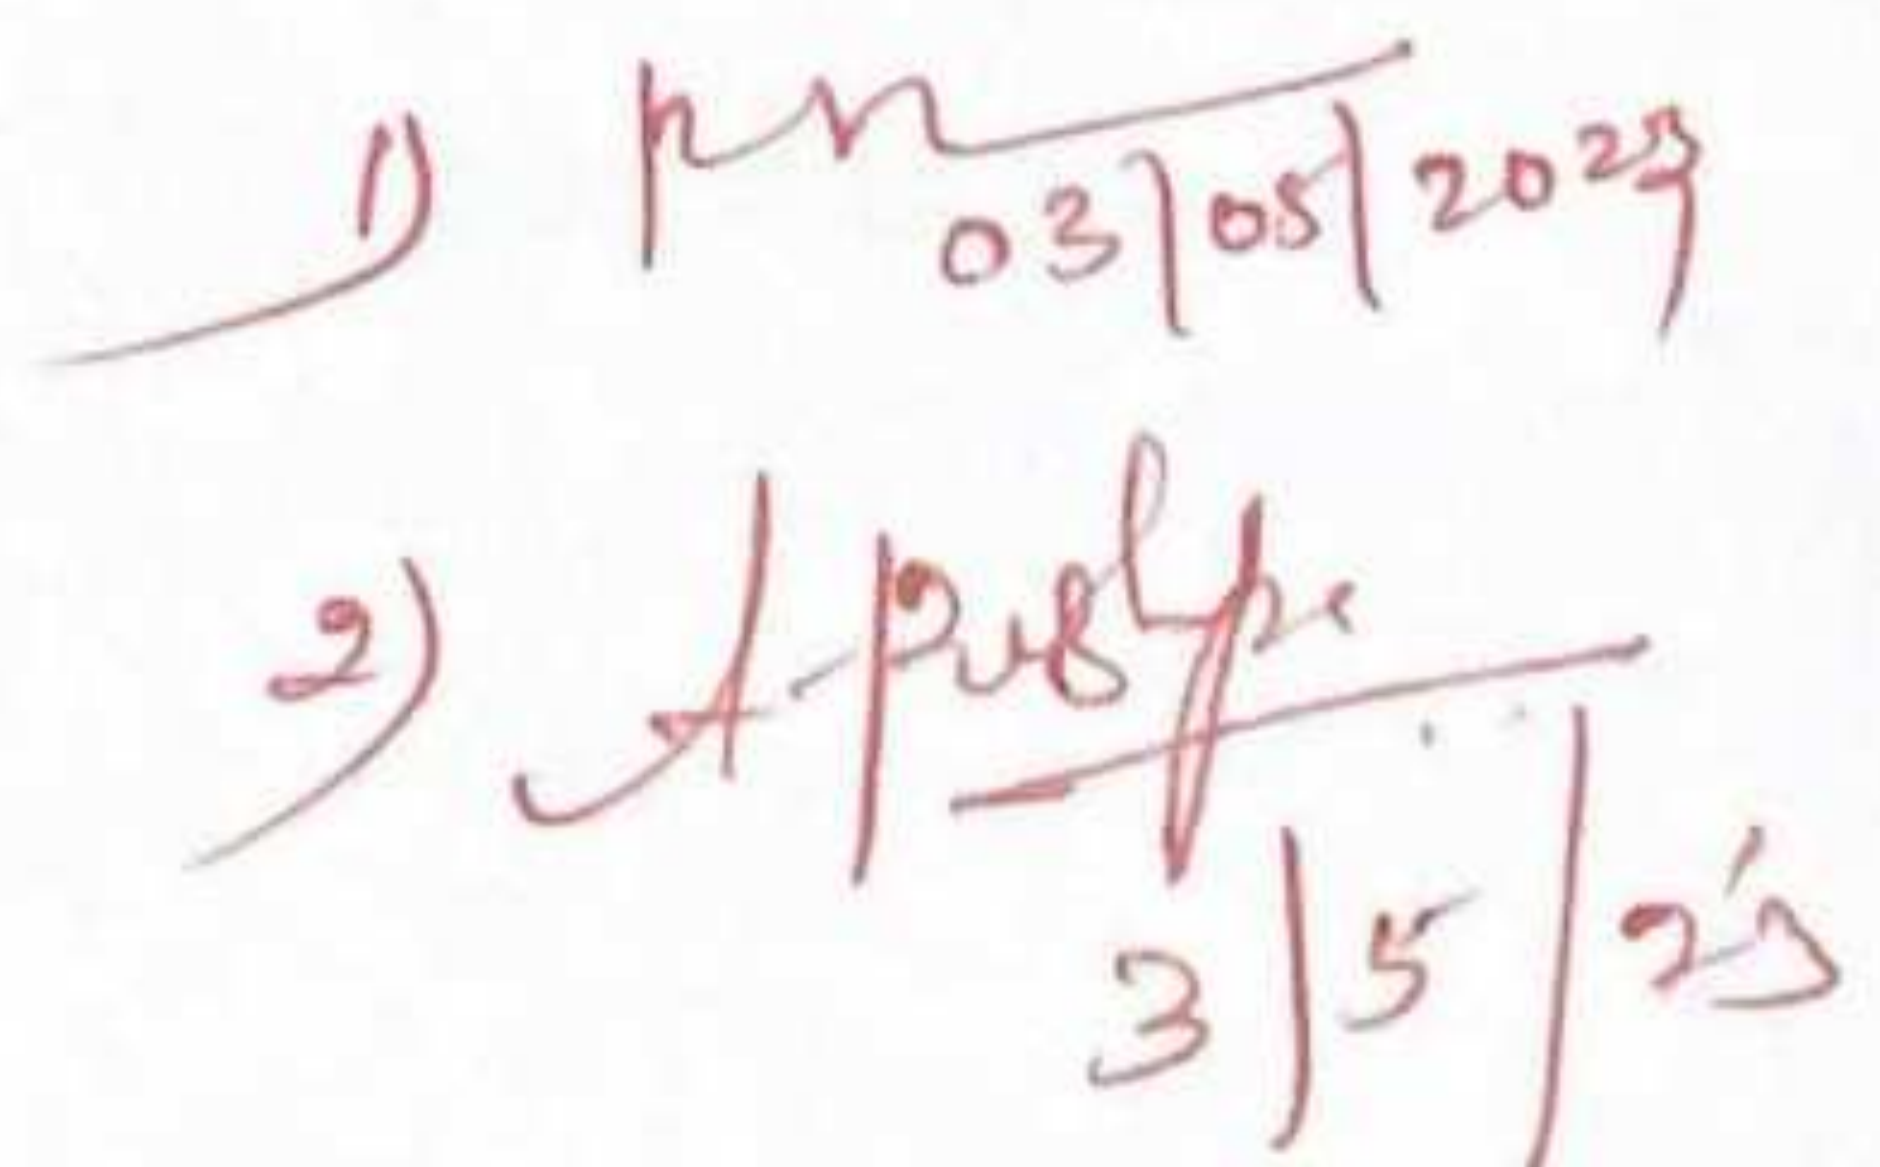 1)
03/05/2023
2) A. Pushpa
3/5/23